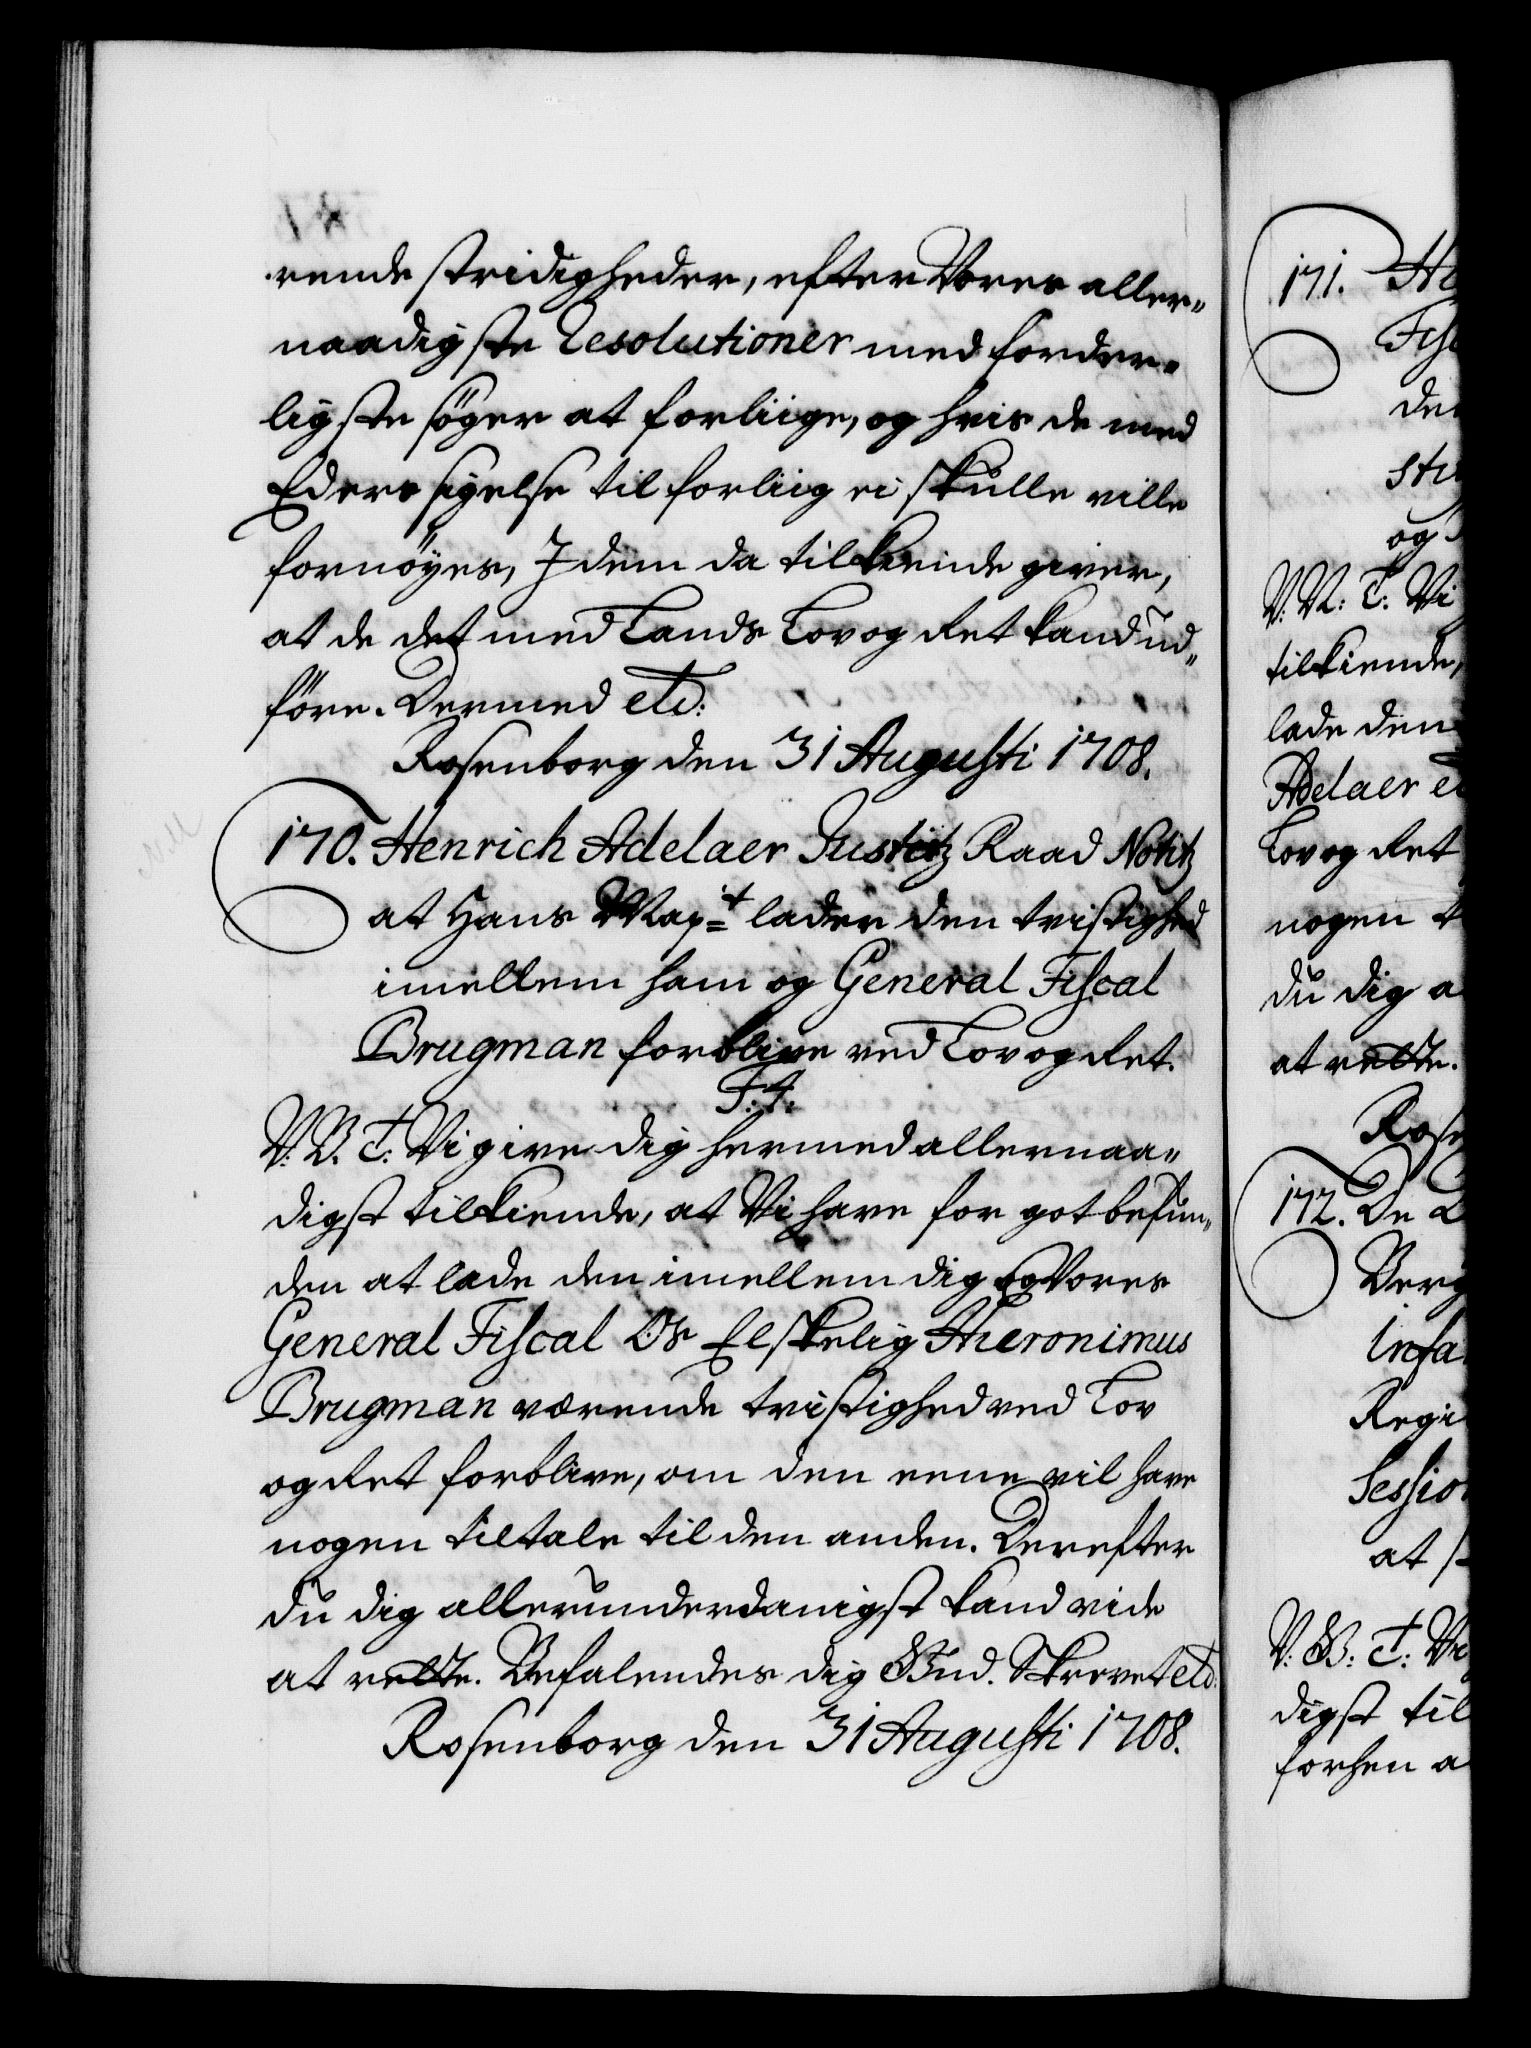 rende stridigheder, efter Vores aller-
naadigste Resolutioner med forder-
ligste söger at forliige, og hvis de med
Eders sigelse til forliig ei skulle ville
fornöyes, I dem da tilkiende giver,
at de det med Lands Lov og Ret kand ud-
före. Dermed etc:
Rosenborg den 31 Augusti 1708.
170. Henrich Adelaer Justitz Raad Notitz
at Hans Mayt lader den tvistighed
imellem ham og General Fiscal
Brugman forblive ved Lov og Ret.
F: 4.
V. B. T: Vi give dig hermed allernaa-
digst tilkiende, at Vi have for got befun-
den at lade den imellem dig og Vores
General Fiscal Os Elskelig Hieronimus
Brugman værende tvistighed ved Lov
og Ret forblive, om den eene vil have
nogen tiltale til den anden. Derefter
du dig allerunderdanigst kand vide
at rette. Befalendes dig Gud. Skrevet etc:
Rosenborg den 31 Augusti 1708.
171. He
Fisc
den
og
V. V: T: Vi
tilkiende,
lade den
Adelaer et
Lov og Ret
nogen t
du dig a
at rette.
Rose
172. De
Berg
Infa
Regi
Session
at s
V: B: T: Vi
digst til
forhen a